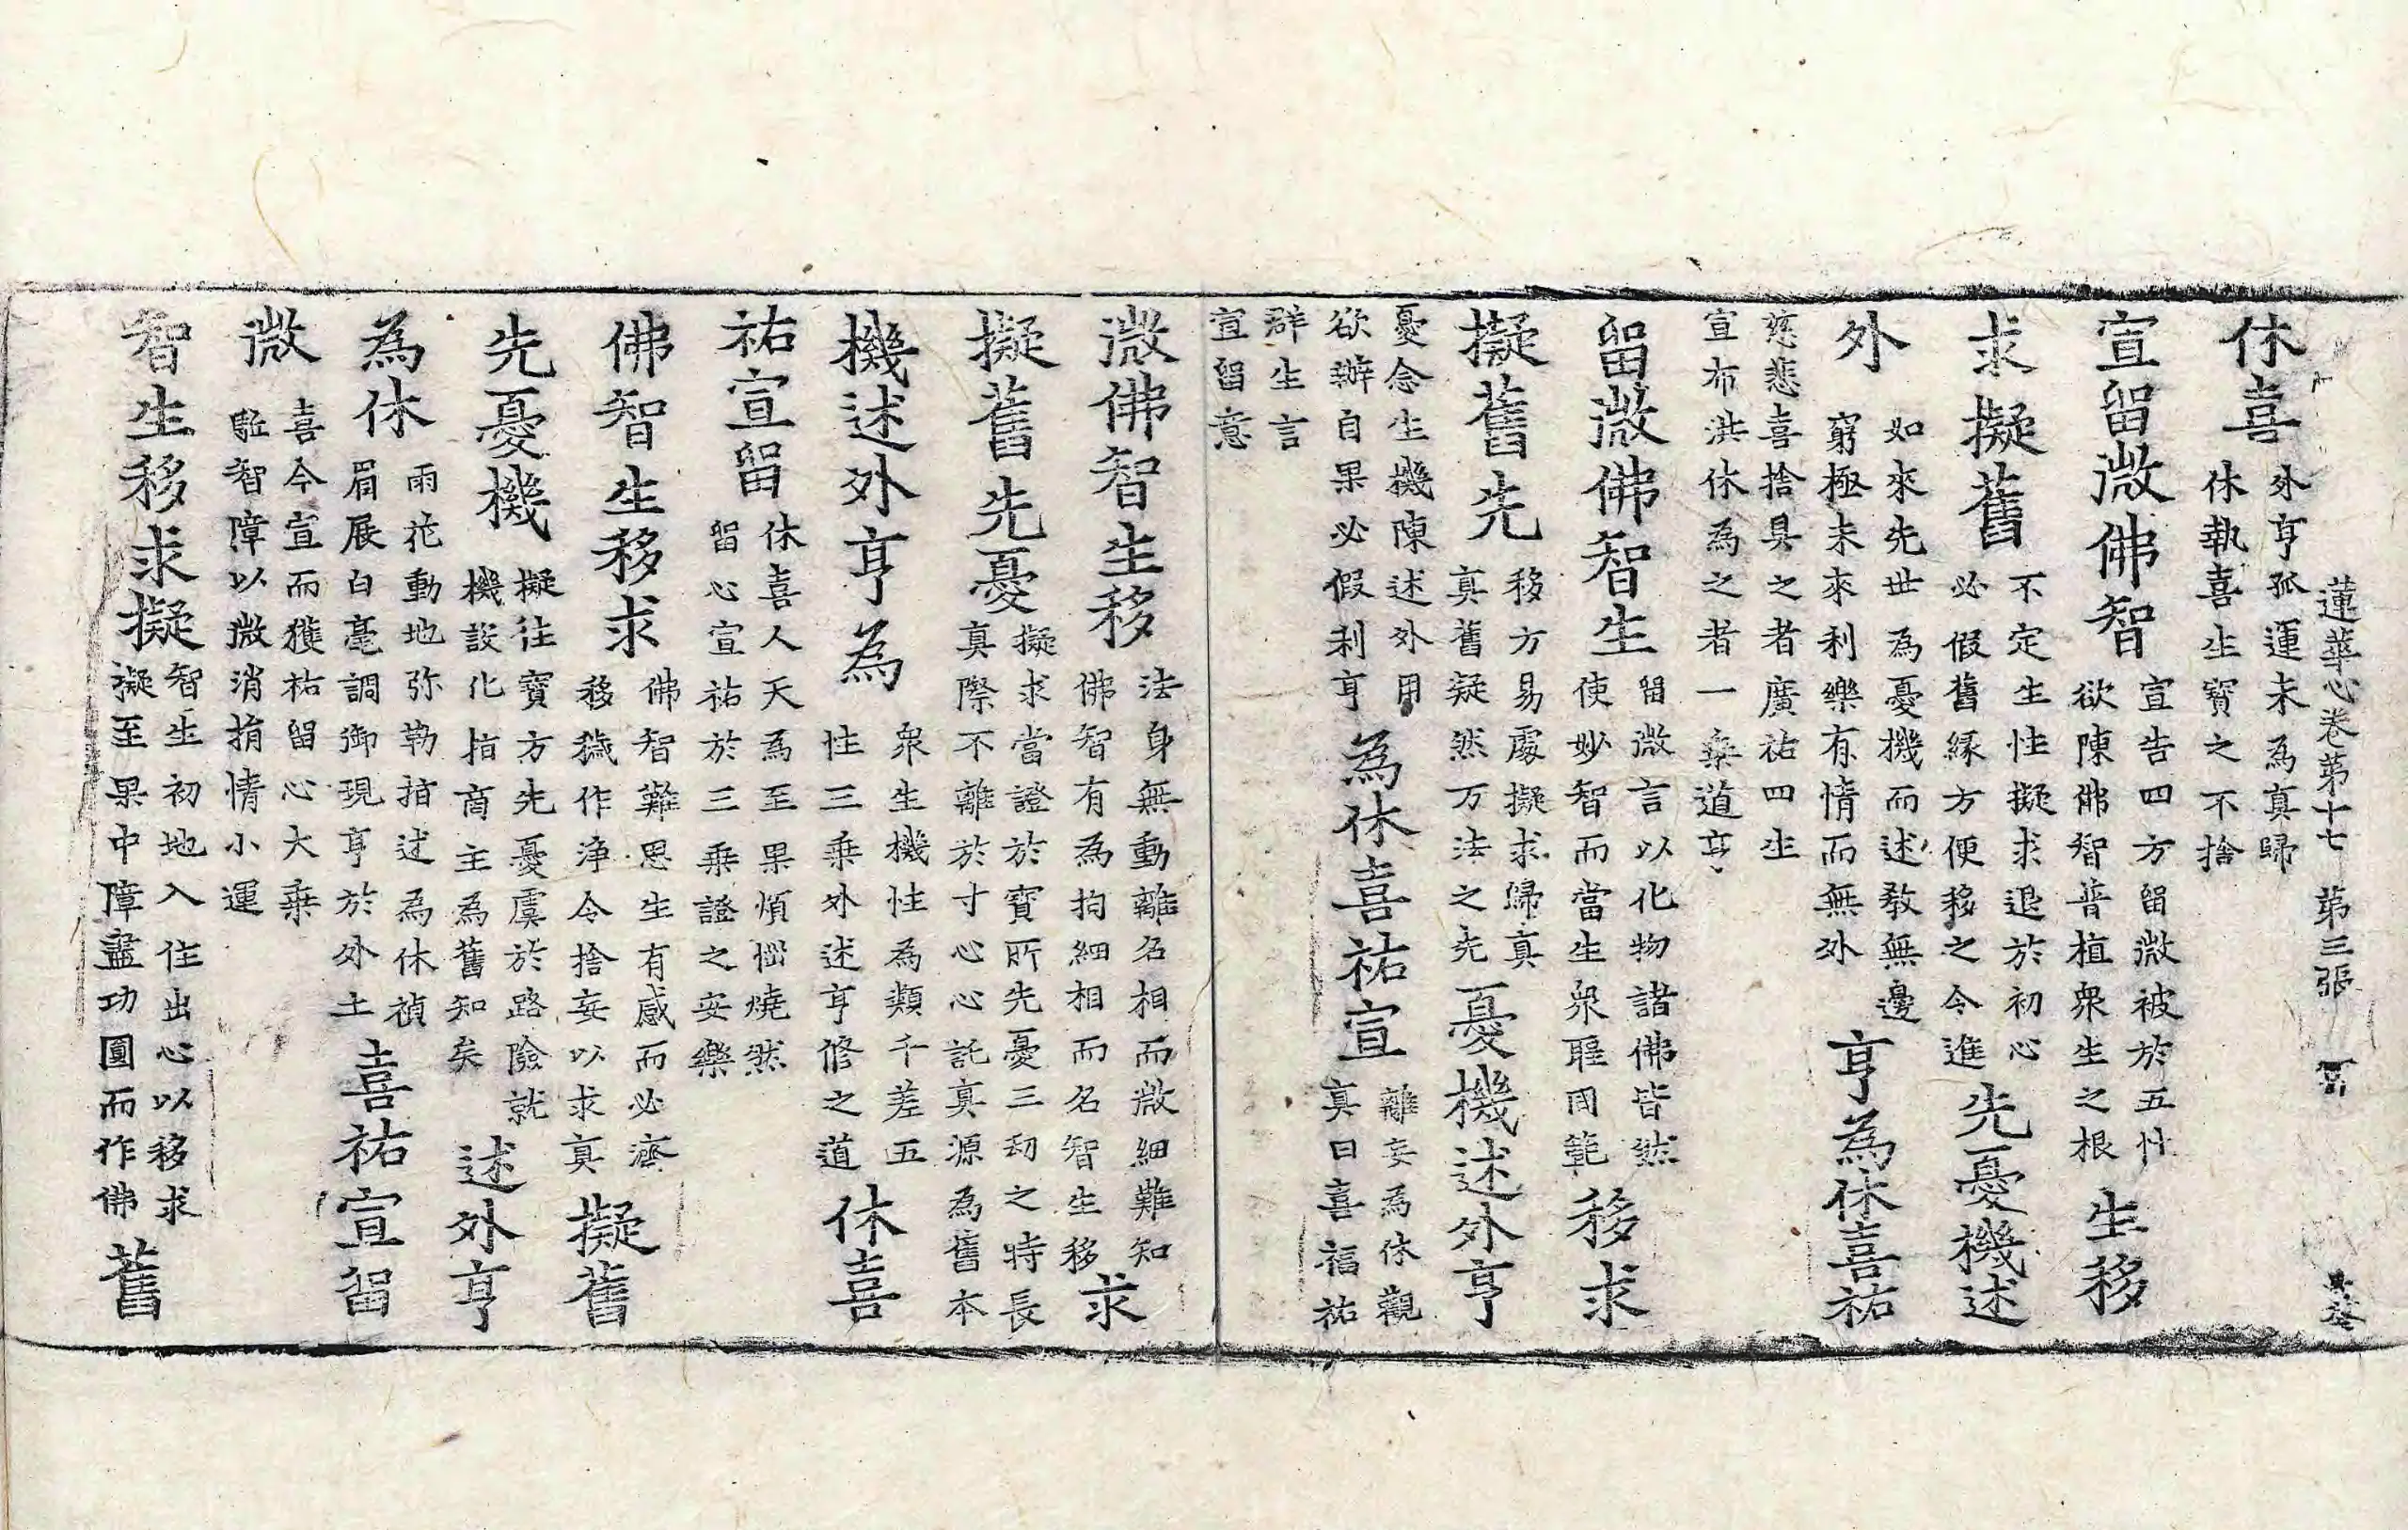 蓮華心卷苐十七 苐三張
休喜 外亨孤運未為真歸
休執喜生寳之不捨
宣留微佛智 宣告四方留微被於五性
欲陳佛智普植衆生之根 生移
求擬舊 不定生性擬求退於初心
必假舊緣方便移之令進 先憂機述
外 如來先世為憂機而述教無邊
窮極未來利樂有情而無外 亨為休喜祐
慈悲喜捨具之者廣祐四生
宣布洪休為之者一乗道亨
留微佛智生 留微言以化物諸佛皆然
使妙智而當生衆罔範 移求
擬舊先 移方易處擬求歸真
真舊凝然万法之先 憂機述外亨
憂念生機陳述外用
欲辦自果必假利亨 為休喜祐宣 離妄為休觀
真曰喜福祐
群生言
宣留意
微佛智生移 法身無動離名相而微細難知
佛智有為拘細相而名智生移 求
擬舊先憂 擬求當證於寳所先憂三劫之時長
真際不離於寸心心託真源為舊本
機述外亨為 衆生機性為類千差五
性三乗外述亨修之道 休喜
祐宣留 休喜人天為至果煩惱燒然
留心宣祐於三乗證之安樂
佛智生移求 佛智難思生有感而必濟
移穢作浄令捨妄以求真 擬舊
先憂機 擬往寳方先憂虞於路險就
機設化指啇主為舊知矣 述外亨
為休 雨花動地弥勒指述為休禎
眉展白毫調御現亨於外土 喜祐宣留
微 喜今宣而獲祐留心大乗
駈智障以微消捐情小運
智生移求擬 智生初地入住出心以移求
擬至果中障盡功圓而作佛 舊